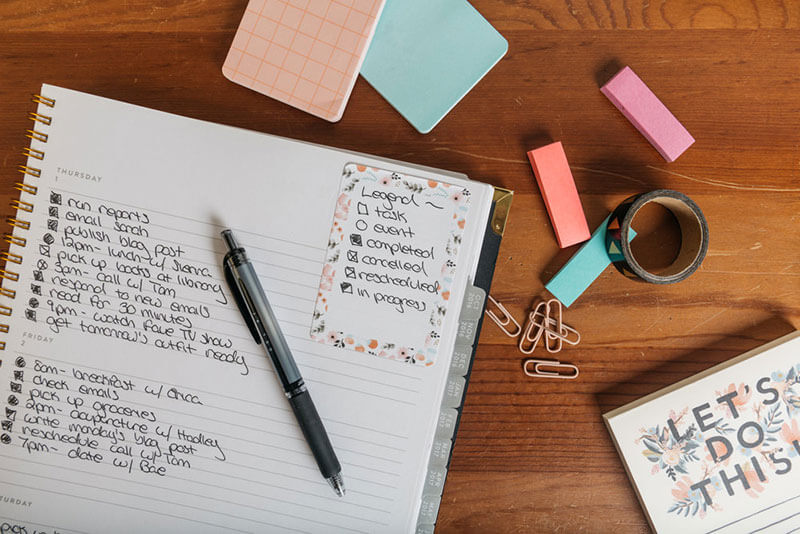 THURSDAY
1
run reports
email sarah
publish blog post
12pm- lunch w/ Sienna
pick up books at library
3am- call w/ Tom
respond to new emails
read for 30 minutes
9pm- watch fave TV show
get tomorrow's outfit ready
FRIDAY
2
8am- breakfast w/ Erica
check emails
pick up groceries
2pm- acupuncture w/ Hadley
write monday's blog post
reschedule call w/ Tom
7pm- date w/ Bae
TURDAY
pick up
Legend ~
task
event
completed
cancelled
rescheduled
in progress
OCT
NOV
DEC
JAN
LET'S
DO
THIS